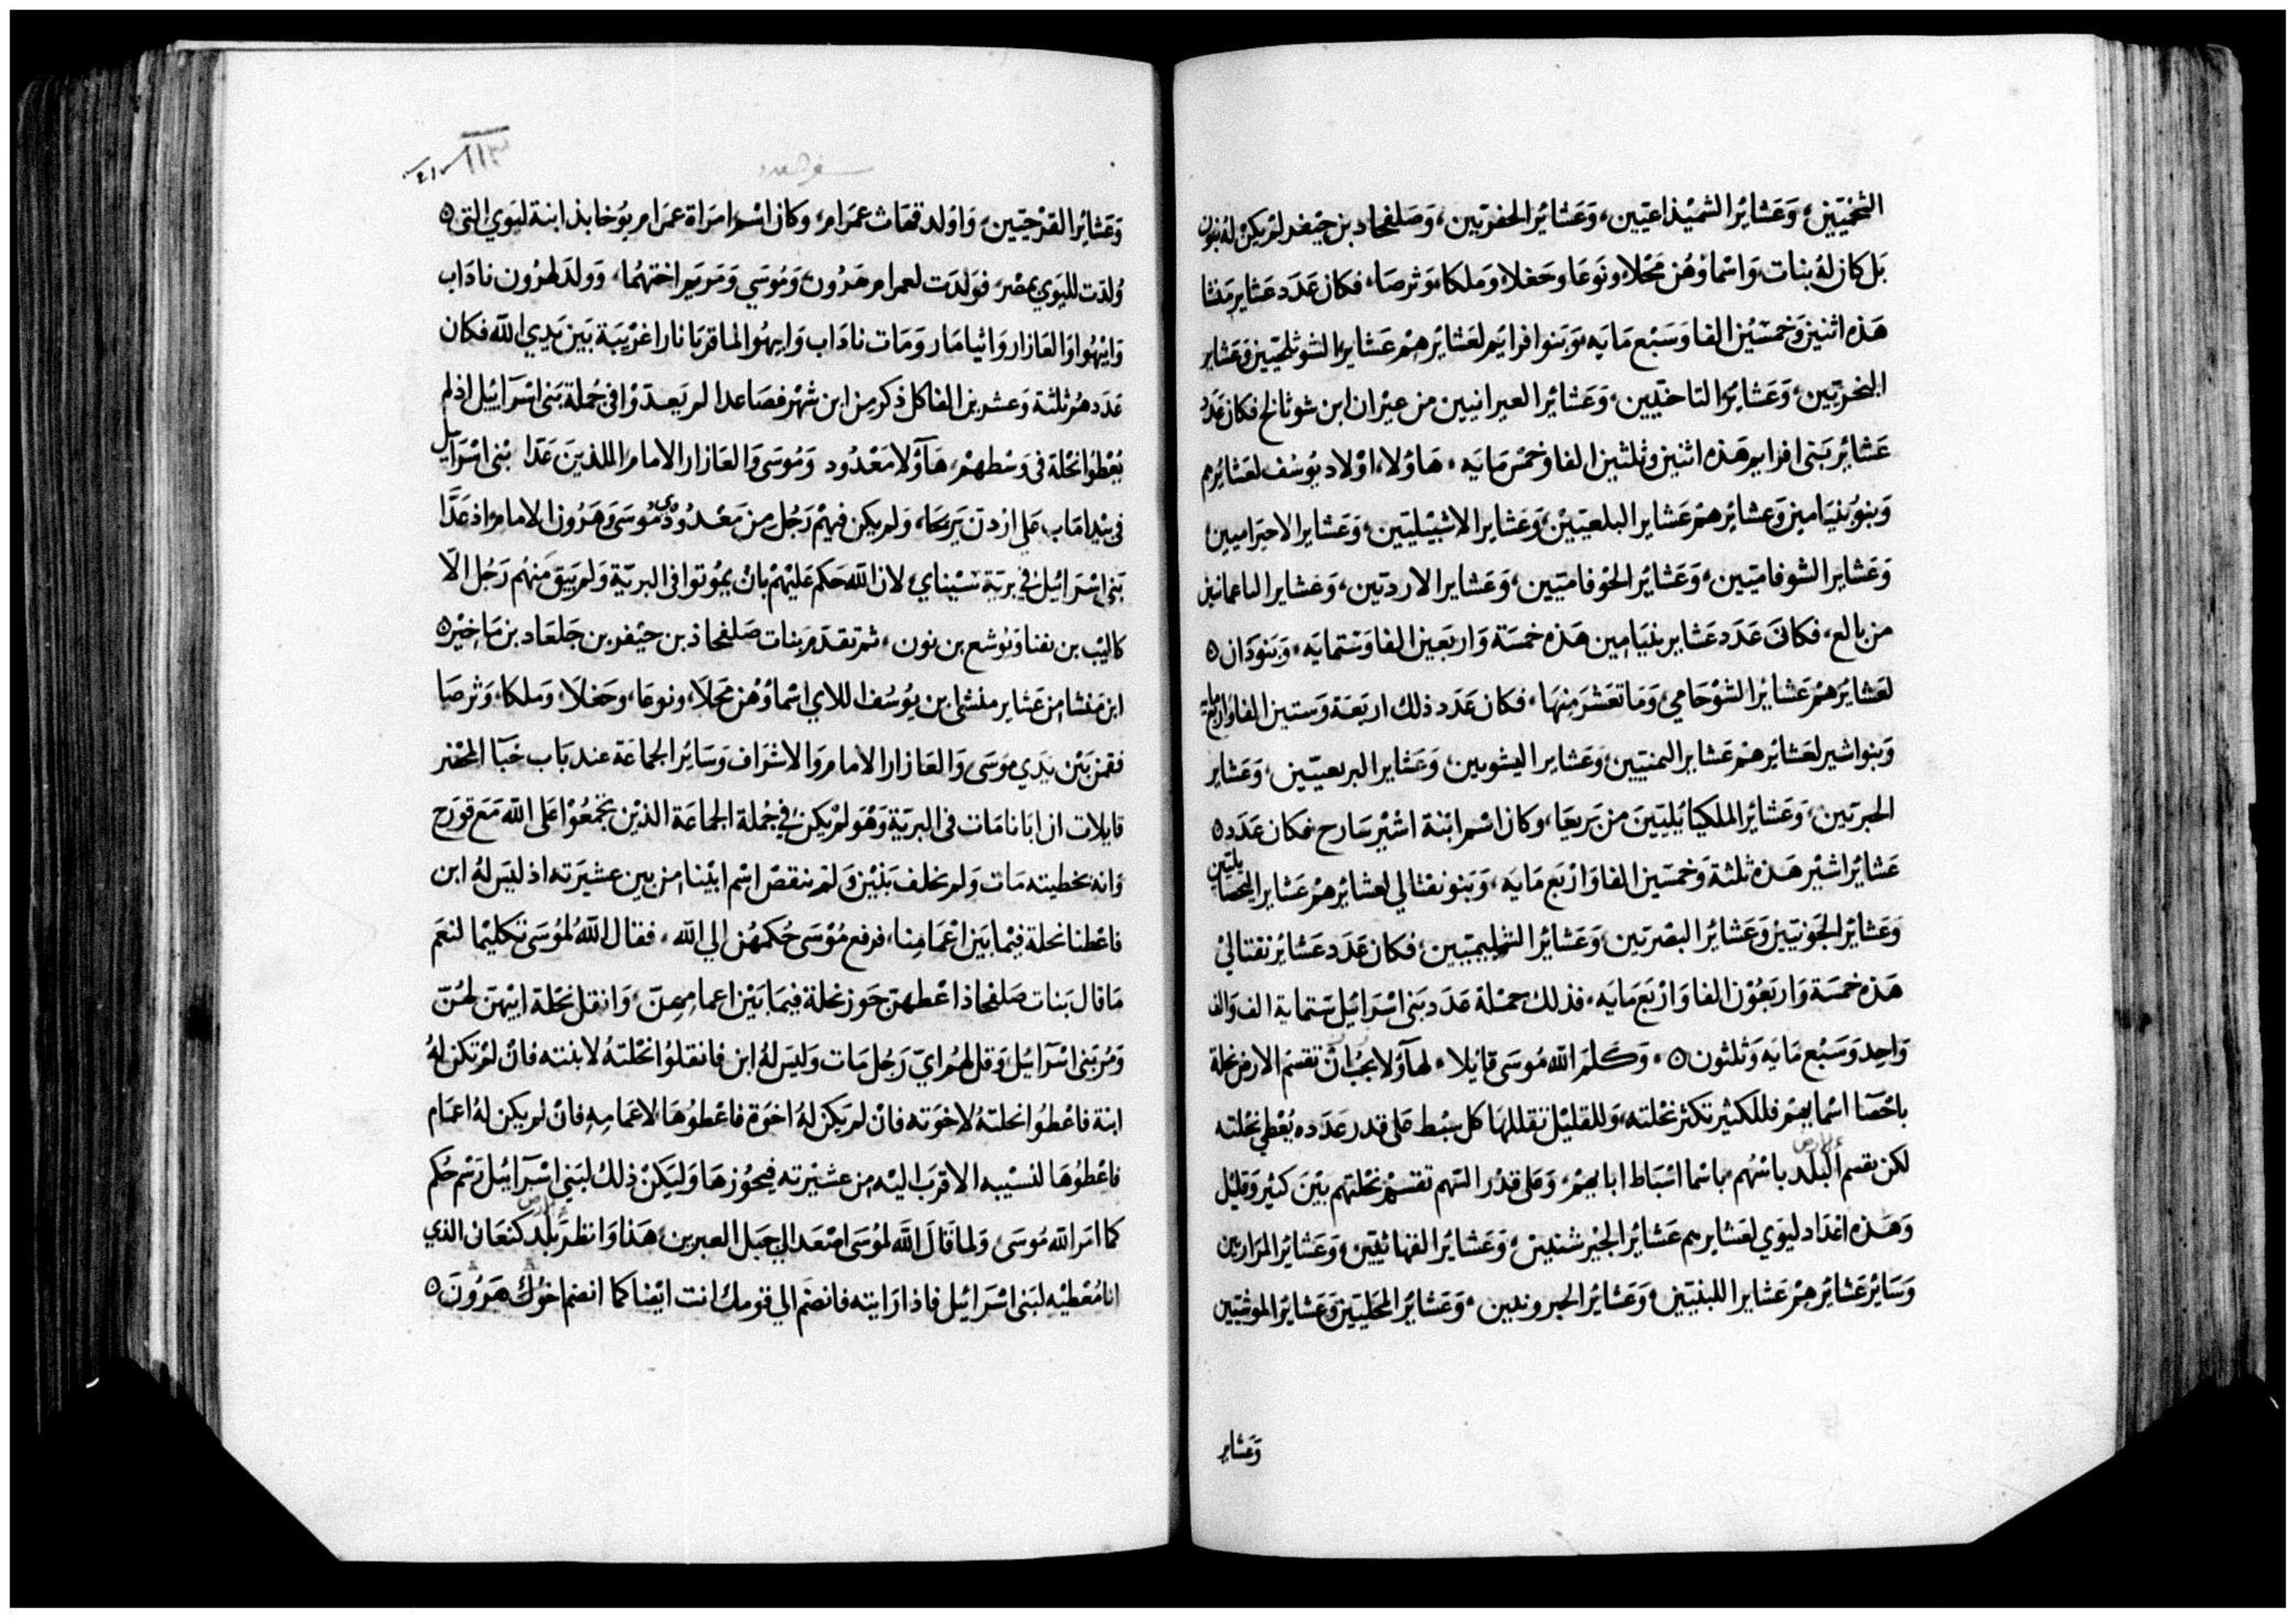 الشخميين، وَعَشائر الشميذاعيين، وَعَشائر الحفريين، وَصَلفحاد بن حيفر لم يكن له بنون
بَل كان لهُ بنات، وَاسْماؤهُن مَحْلا، ونوعَا وحَغلا، وَملكا، وَثرصَا، فكان عَدَد عَشاير مَنشا
هَذه اثنين وَخمسْين الفا وَسَبْع مَايَه، وَبَنوا افرايم لعَشائرهم عَشاير الشوثلحيين وَعَشاير
البخريين، وَعَشائر التاخنيين، وَعَشائر العيرانيين من عيران ابن شوثالح فكان عَدَد
عَشائر بَني افرايم هَذه اثنين وثلثين الفا وخمْس مَايَه، هَاولاء اوْلاد يوسُف لعَشائرهم
وَبنوُ بنيَامين وَعشائرهمْ عَشاير البلعيين، وَعَشاير الاشبيليين، وَعَشاير الاحيراميين
وَعَشاير الشوفاميين، وَعَشائر الحوْفاميين، وَعَشاير الارديين، وَعشاير الناعمانيين
من بالع، فكانَ عَدَد عَشاير بنيَامين هَذه خمسَة وَاربَعين الفا وَستمايَه، وَبَنودَان ه
لعَشايرَهمْ عَشائر الشوْحَامي، وَمَا تعَشرَ مِنهَا، فكان عَدَد ذلك اربَعَة وَستين الفا واربع مايه
وَبنوا اشير لعَشائرهمْ عَشاير اليمنيين، وَعَشاير اليشويين، وَعَشاير البريعيّين، وَعَشاير
الحبريّين، وَعَشائر الملكيائليينَ من بَريعَا، وكان اسْم ابْنة اشيْر سَارح فكان عَدَد ه
عَشائر اشيْر هَذه ثلثة وَخمسَين الفا وَارْبَع مَايَه، وَبَنو نفتالي لعشائرهمْ عَشاير اليحصايليّين
وَعَشائر الجَونيّين وَعَشائر اليصْريين، وَعَشائر الشليميّين، فكان عَدَد عَشائر نفتالي
هَذه خمسَة وَاربَعُوْن الفا وَارْبَع مَايَه، فذلك جمْلة عَدَد بَني اسْرَائيل ستماية الف والف
وَاحِد وَسَبْع مَايَه وَثلثون ه وَكلمَ الله مُوسَى قايلا، لهآوُلا يجبُ انْ تقسَم الارض نحلة
باحْصَا اسْمايهمْ فللكثير تكثر نحْلته، وَللقليْل تقللهَا كل سِبْط عَلى قدر عَدَده يُعْطي نحْلته
لكن يقسم البلد بالسْهُم باسْما اسْبَاط ابايهمْ، وَعَلى قدْر السَهم تقسَم نحْلتهم بَيْنَ كثيْر وَقليْل
وَهَذه اعْدَاد ليَوي لعَشايرهم عَشائر الجيْرشنيين، وَعَشائر القهاثيّين وَعَشائر المرَاريين
وَسَائر عَشائرهِمْ عَشاير اللبنيّين، وَعَشائر الحبرونيين، وَعَشائر المحَليّين وَعَشائر الموشيّين
وَعَشاير
سفر العدد
١١٣
وَعَشائر القرْحيّين، وَاوَلد قهَاث عمَرام، وكان اسْم امرَاة عمَرام يوُخابذ ابنة ليَوي التي ه
وُلدَت لليَوي بمصْر، فوَلدَت لعمرام هَرُون، وَمُوسَي وَمَريَم اختهُما، وَولدَ لهرُون نادَاب
وَابيْهُوا وَالعَازار وَاثيامَار وَمَات نادَاب وَابيهُوا لما قربَا نارا غرْيَبَة بَين يَدي الله فكان
عَدَدهُم ثلثة وَعشرين الفا كل ذكر مِن ابن شهْر فصَاعدا لم يَعدّوْا في جُملة بَني اسْرَآئيْل اذ لم
يُعْطوا نحْلة في وَسْطهمْ، هَآوُلا مَعْدُود وَمُوسَى وَالعَازار الامام اللذينَ عَدَّا بَني اسْرَآيل
في بيْدا مَاب عَلي اردن يَريحَا، وَلم يكن فيهمْ رَجُل من مَعْدُودي مُوسَى وَهَرُون الامام اذ عَدَّا
بَني اسْرَائيْل في بريَة سيْناي، لان اللّه حَكم عَليْهمْ بانْ يمُوتوا في البريّة وَلم يَبقَ مِنهُم رَجُل الّا
كاليْب بن يفنا وَيُوشع بن نون، ثم تقدَم بَنات صَلفحاذ بن حيْفر بن جَلعَاد بن مَاخِيْر ه
ابن مَنشا من عَشاير منشي بن يوُسُف اللاي اسْماؤُهُن مَحْلا، ونوعَا، وحَغلَا، وَملكا، وَثرصَا
فقمن بَيْن يَدَي موسَى وَالعَازار الامام وَالاشرَاف وَسَائر الجماعَة عند بَاب خبَآ المحْضر
قايلات ان ابَانا مَات في البريّة، وَهُوَ لمْ يكن في جُملة الجماعَة الذيْن تجمّعُوْا عَلى اللّه مَع قوْرَح
وَانه بخطيته مَات وَلم يخلف بَنيْن وَلمَ ينقصْ اسْم ابيْنا من بين عشيْرَته اذ ليسَ لهُ ابن
فاعْطنا نحلة فيْما بَين اعْمَامِنا، فرفع مُوْسَى حُكمهُن الي اللّه، فقال اللّهُ لمُوسَى تكليْما لنعَم
مَا قال بَنات صَلفحاذ اعْطهنّ حَوز نحلة فيمَا بَيْن اعمامهِنّ، وَانقل نحْلة ابيْهنّ لهنّ
وَمُر بَني اسْرَآئيل وَقل لهُم ايّ رَجُل مَات وَليسَ لهُ ابن فانقلوُا نحْلتهُ لابنته فانْ لمْ تكن لهُ
ابنة فاعْطوُا نحلتهُ لاخوَته فان لم يَكن لهُ اخوَة فاعْطوُهَا لاعْمَامهِ فانْ لم يكن لهُ اعمَام
فاعْطوُهَا لنسيْبه الاقرَب اليْه من عشيْرته فيحوُزهَا وَليَكنْ ذلك لبَني اسْرَآئيل رَسْم حُكم
كما امَر اللّه مُوسَى وَلما قالَ اللّه لموُسَى اصْعَد الي جَبل العبرين، هَذا وَانظر بَلد كنعَان الذي
انا مُعْطيْه لبَني اسْرَائيْل فاذا رَايته فانضم الي قومك انت ايْضا كما انضم اخوُك هَرُونَ ه